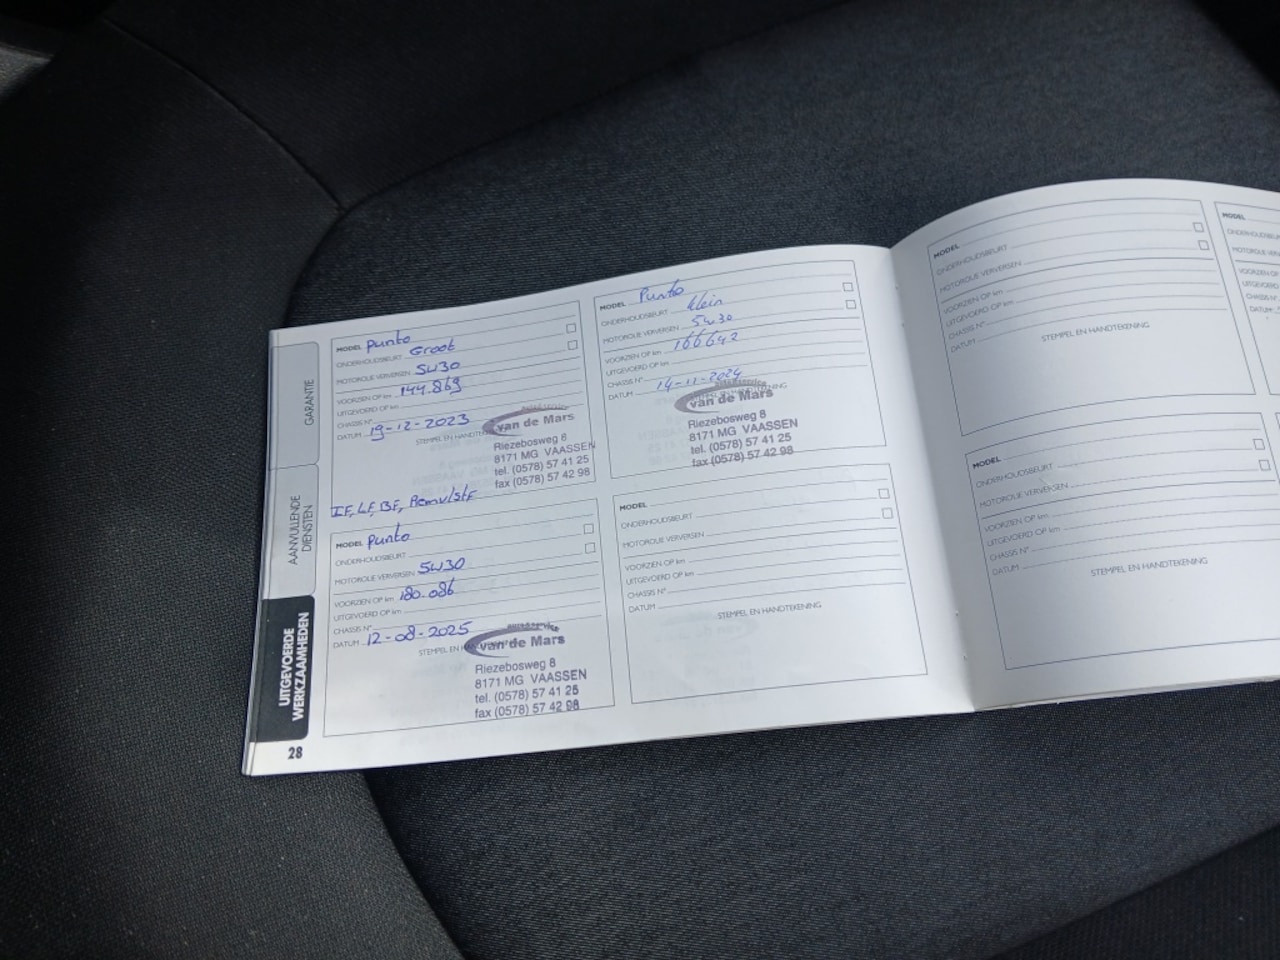 GARANTIE
AANVULLENDE
DIENSTEN
UITGEVOERDE
WERKZAAMHEDEN
28
MODEL Punto
ONDERHOUDSBEURT Groot
MOTOROLIE VERVERSEN 5W30
VOORZIEN OP km 144.869
UITGEVOERD OP km
CHASSIS N°
DATUM 19-12-2023
STEMPEL EN HANDTEKENING
van de Mars
Riezebosweg 8
8171 MG VAASSEN
tel. (0578) 57 41 25
fax (0578) 57 42 98
IF, LF, BF,
MODEL Punto
ONDERHOUDSBEURT Klein
MOTOROLIE VERVERSEN 5W30
VOORZIEN OP km 166642
UITGEVOERD OP km
CHASSIS N°
DATUM 14-11-2024
van de Mars
Riezebosweg 8
8171 MG VAASSEN
tel. (0578) 57 41 25
fax (0578) 57 42 98
MODEL Punto
ONDERHOUDSBEURT
MOTOROLIE VERVERSEN 5W30
VOORZIEN OP km 180.086
UITGEVOERD OP km
CHASSIS N°
DATUM 12-08-2025
STEMPEL EN
autoservice
van de Mars
Riezebosweg 8
8171 MG VAASSEN
tel. (0578) 57 41 25
fax (0578) 57 42 98
MODEL
ONDERHOUDSBEURT
MOTOROLIE VERVERSEN
VOORZIEN OP km
UITGEVOERD OP km
CHASSIS N°
DATUM
STEMPEL EN HANDTEKENING
MODEL
ONDERHOUDSBEURT
MOTOROLIE VERVERSEN
VOORZIEN OP km
UITGEVOERD OP km
CHASSIS N°
DATUM
STEMPEL EN HANDTEKENING
MODEL
ONDERHOUDSBEURT
MOTOROLIE VERVERSEN
VOORZIEN OP km
UITGEVOERD OP km
CHASSIS N°
DATUM
STEMPEL EN HANDTEKENING
MODEL